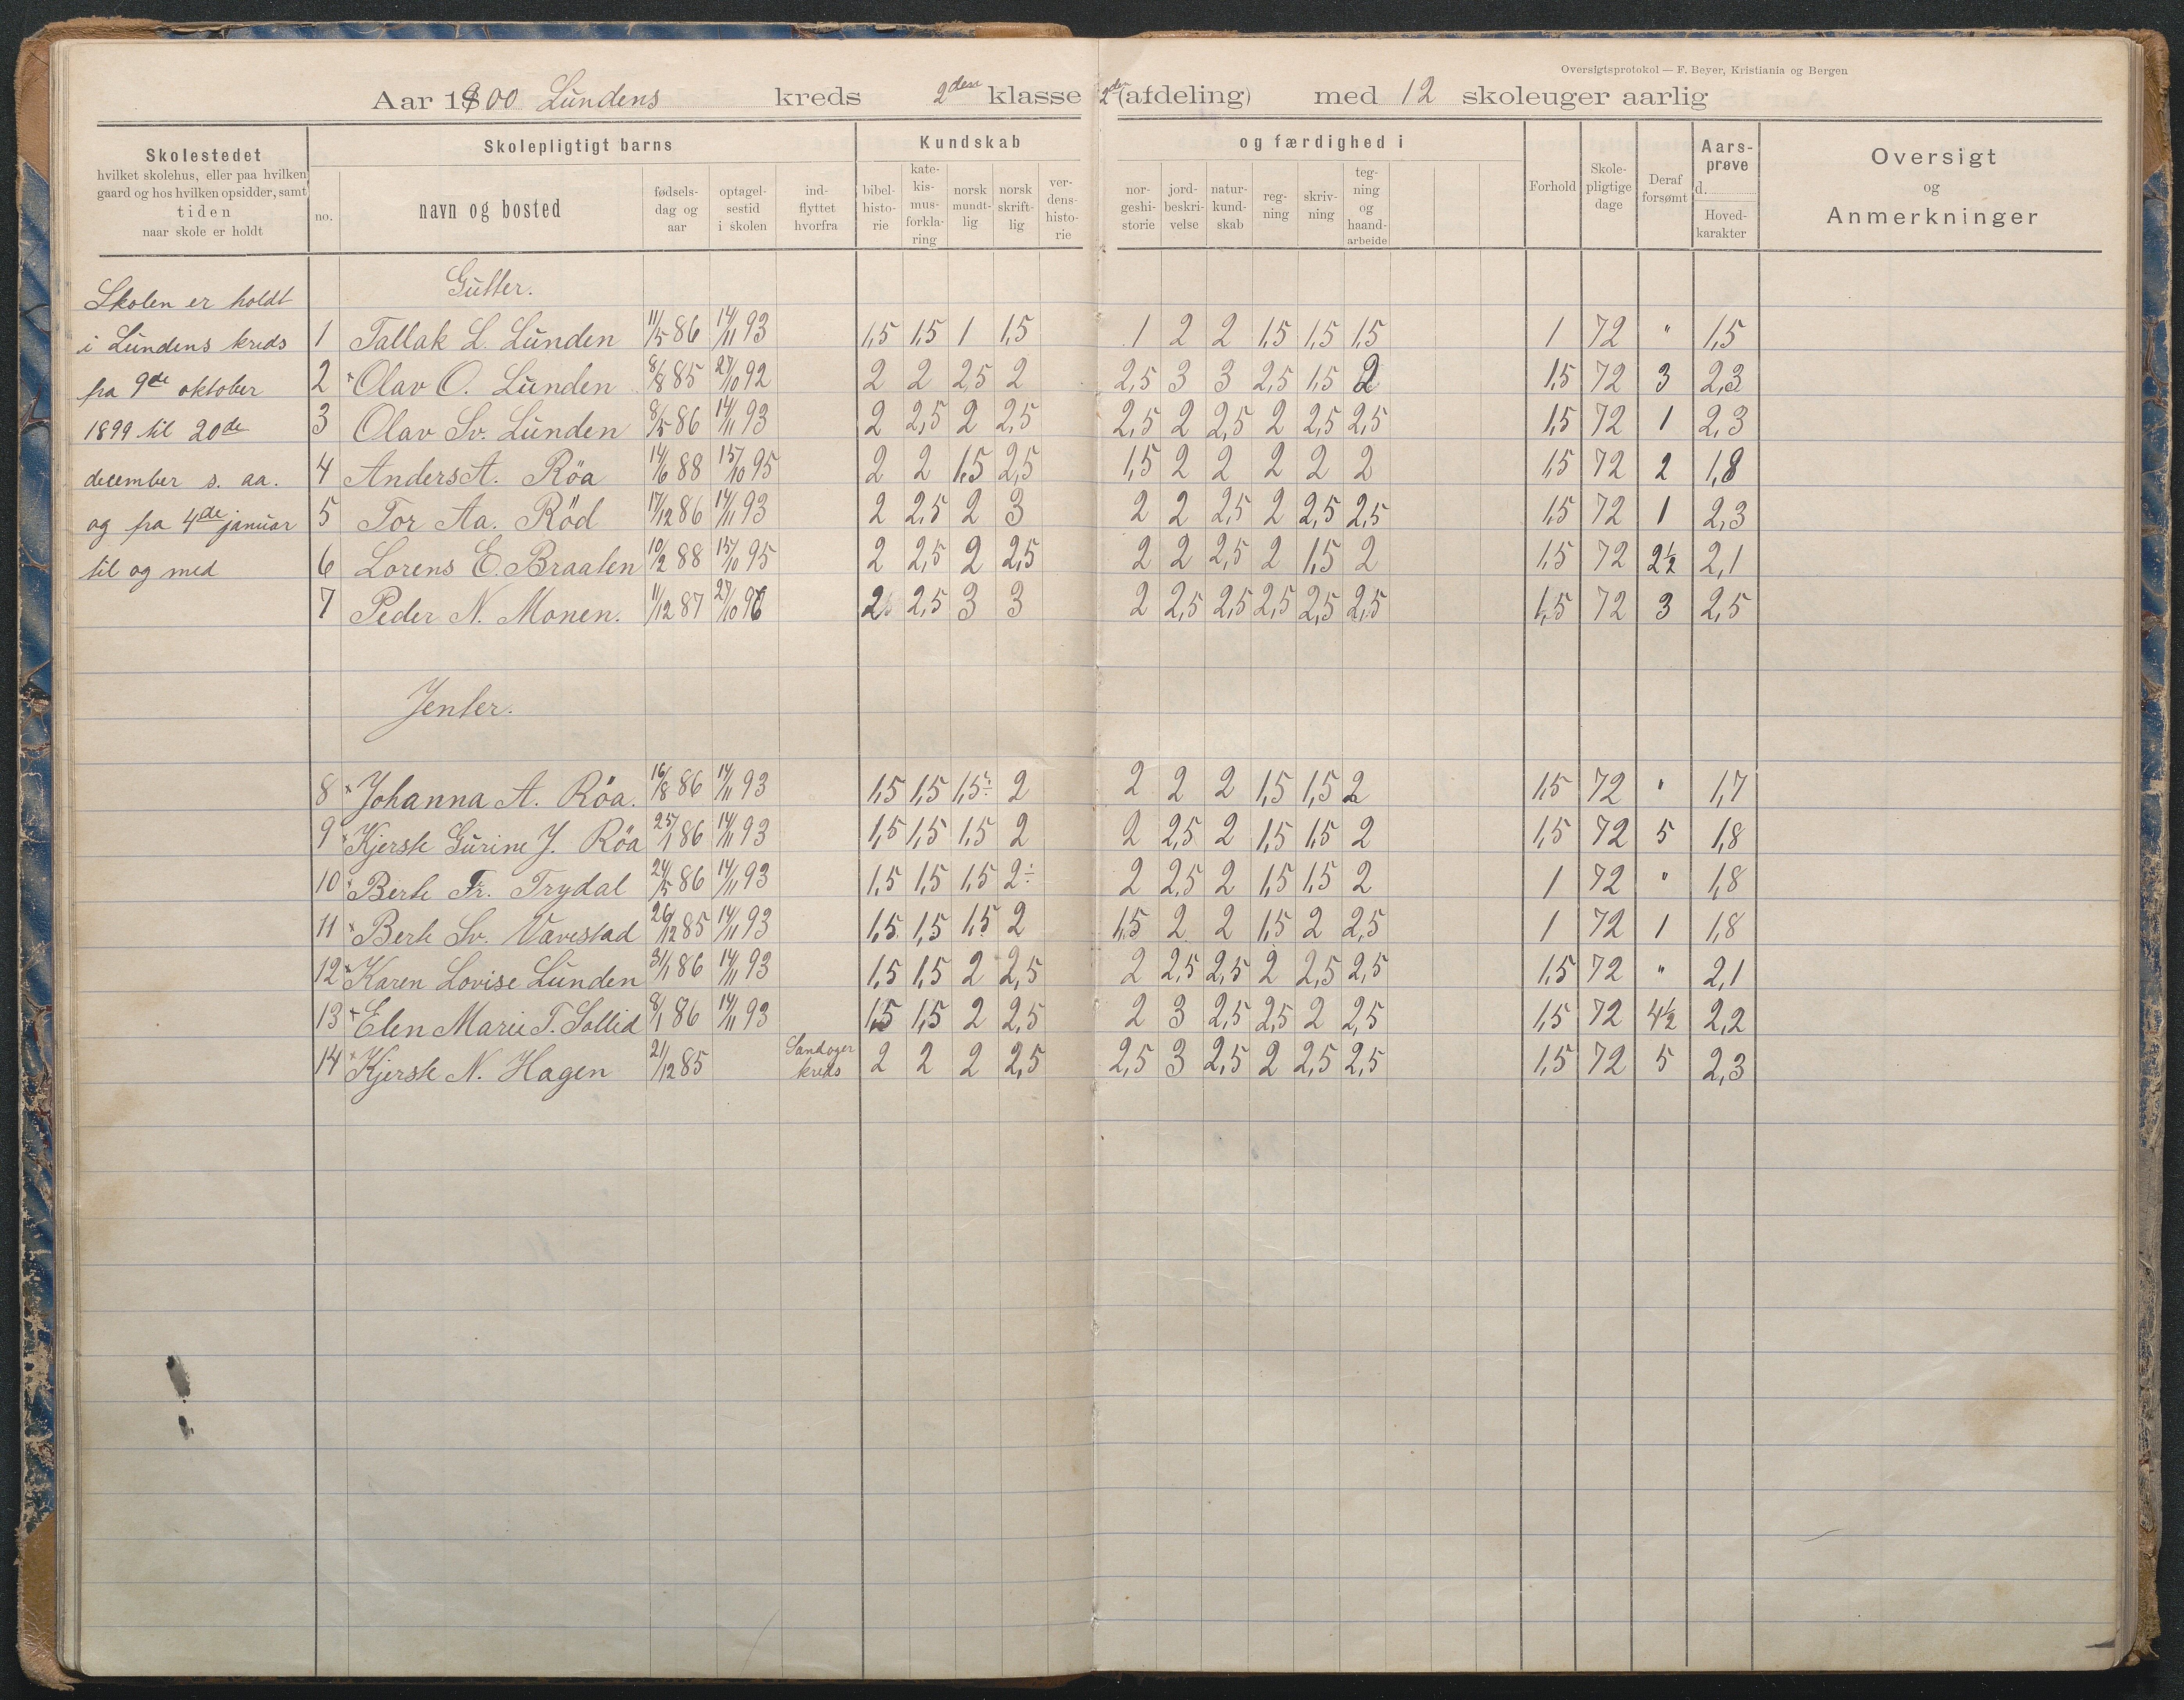 Oversigtsprotokol — F. Beyer, Kristiania og Bergen
Aar 1900 Lundens kreds 2den klasse 2de (afdeling) med 12 skoleuger aarlig
Skolestedet
hvilket skolehus, eller paa hvilken
gaard og hos hvilken opsidder, samt
tiden
naar skole er holdt
Skolepligtigt barns
no.
navn og bosted
fødsels-
dag og
aar
optagel-
sestid
i skolen
ind-
flyttet
hvorfra
Kundskab
bibel-
histo-
rie
kate-
kis-
mus-
forkla-
ring
norsk
mundt-
lig
norsk
skrift-
lig
ver-
dens-
histo-
rie
og færdighed i
nor-
geshi-
storie
jord-
beskri-
velse
natur-
kund-
skab
reg-
ning
skriv-
ning
teg-
ning
og
haand-
arbeide
Forhold
Skole-
pligtige
dage
Deraf
forsømt
Aars-
prøve
d.
Hoved-
karakter
Oversigt
og
Anmerkninger
Skolen er holdt
i Lundens kreds
fra 9de oktober
1899 til 20de
december s. aa.
og fra 4de januar
til og med
Gutter.
1 Tallak L. Lunden 11/5 86 14/11 93 1,5 1,5 1 1,5 1 2 2 1,5 1,5 1,5 1 72 " 1,5
2 × Olav O. Lunden 8/8 85 27/10 92 2 2 2,5 2 2,5 3 3 2,5 1,5 2 1,5 72 3 2,3
3 Olav Sv. Lunden 8/5 86 14/11 93 2 2,5 2 2,5 2,5 2 2,5 2 2,5 2,5 1,5 72 1 2,3
4 Anders A. Röa 14/6 88 15/10 95 2 2 1,5 2,5 1,5 2 2 2 2 2 1,5 72 2 1,8
5 Tor Aa. Röd 17/12 86 14/11 93 2 2,5 2 3 2 2 2,5 2 2,5 2,5 1,5 72 1 2,3
6 Lorens E. Braaten 10/2 88 15/10 95 2 2,5 2 2,5 2 2 2,5 2 1,5 2 1,5 72 2½ 2,1
7 Peder N. Monen. 11/12 87 27/10 96 2 2,5 3 3 2 2,5 2,5 2,5 2,5 2,5 1,5 72 3 2,5
Jenter.
8 × Johanna A. Röa. 16/8 86 14/11 93 1,5 1,5 1,5÷ 2 2 2 2 1,5 1,5 2 1,5 72 " 1,7
9 × Kjersti Gurine J. Röa 25/1 86 14/11 93 1,5 1,5 1,5 2 2 2,5 2 1,5 1,5 2 1,5 72 5 1,8
10 × Berte Fr. Trydal 24/5 86 14/11 93 1,5 1,5 1,5 2÷ 2 2,5 2 1,5 1,5 2 1 72 " 1,8
11 × Berte Sv. Vavestad 26/12 85 14/11 93 1,5 1,5 1,5 2 1,5 2 2 1,5 2 2,5 1 72 1 1,8
12 × Karen Lovise Lunden 31/1 86 14/11 93 1,5 1,5 2 2,5 2 2,5 2,5 2 2,5 2,5 1,5 72 " 2,1
13 × Elen Marie T. Sollid 8/1 86 14/11 93 1,5 1,5 2 2,5 2 3 2,5 2,5 2 2,5 1,5 72 4½ 2,2
14 × Kjersti N. Hagen 21/12 85 kreds 2 2 2 2,5 2,5 3 2,5 2 2,5 2,5 1,5 72 5 2,3